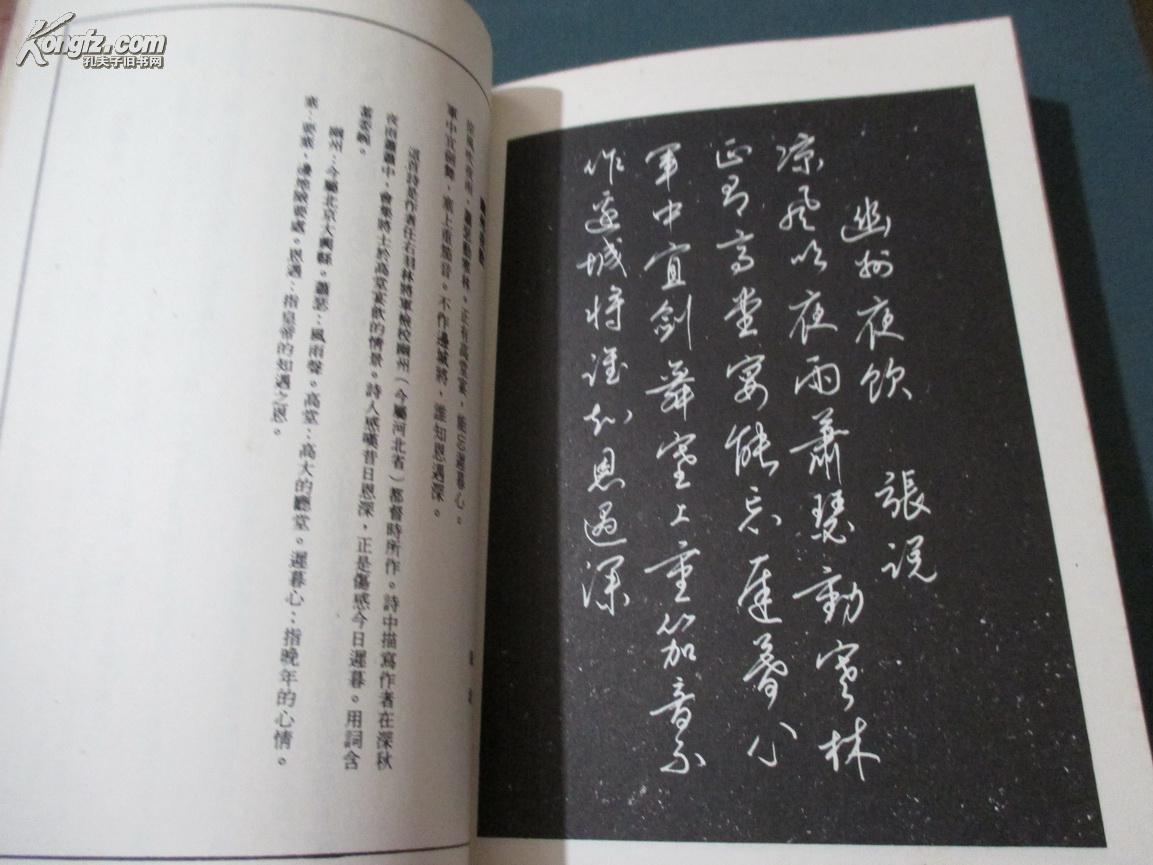 Kongfz.com
孔夫子旧书网
幽州夜飲　張説
涼風吹夜雨蕭瑟動寒林
正有高堂宴能忘遲暮心
軍中宜劍舞塞上重笳音不
作邊城將誰知恩遇深
涼風吹夜雨，蕭瑟動寒林。正有高堂宴，能忘遲暮心。
軍中宜劍舞，塞上重笳音。不作邊城將，誰知恩遇深。
這首詩是作者任右羽林將軍檢校幽州（今屬河北省）都督時所作。詩中描寫作者在深秋
夜雨蕭蕭中，會集將士於高堂宴飲的情景。詩人感嘆昔日恩深，正是傷感今日遲暮。用詞含
蓄委婉。
幽州：今屬北京大興縣。蕭瑟：風雨聲。高堂：高大的廳堂。遲暮心：指晚年的心情。
重：要戴，邊塞險要處。恩遇：指皇帝的知遇之恩。